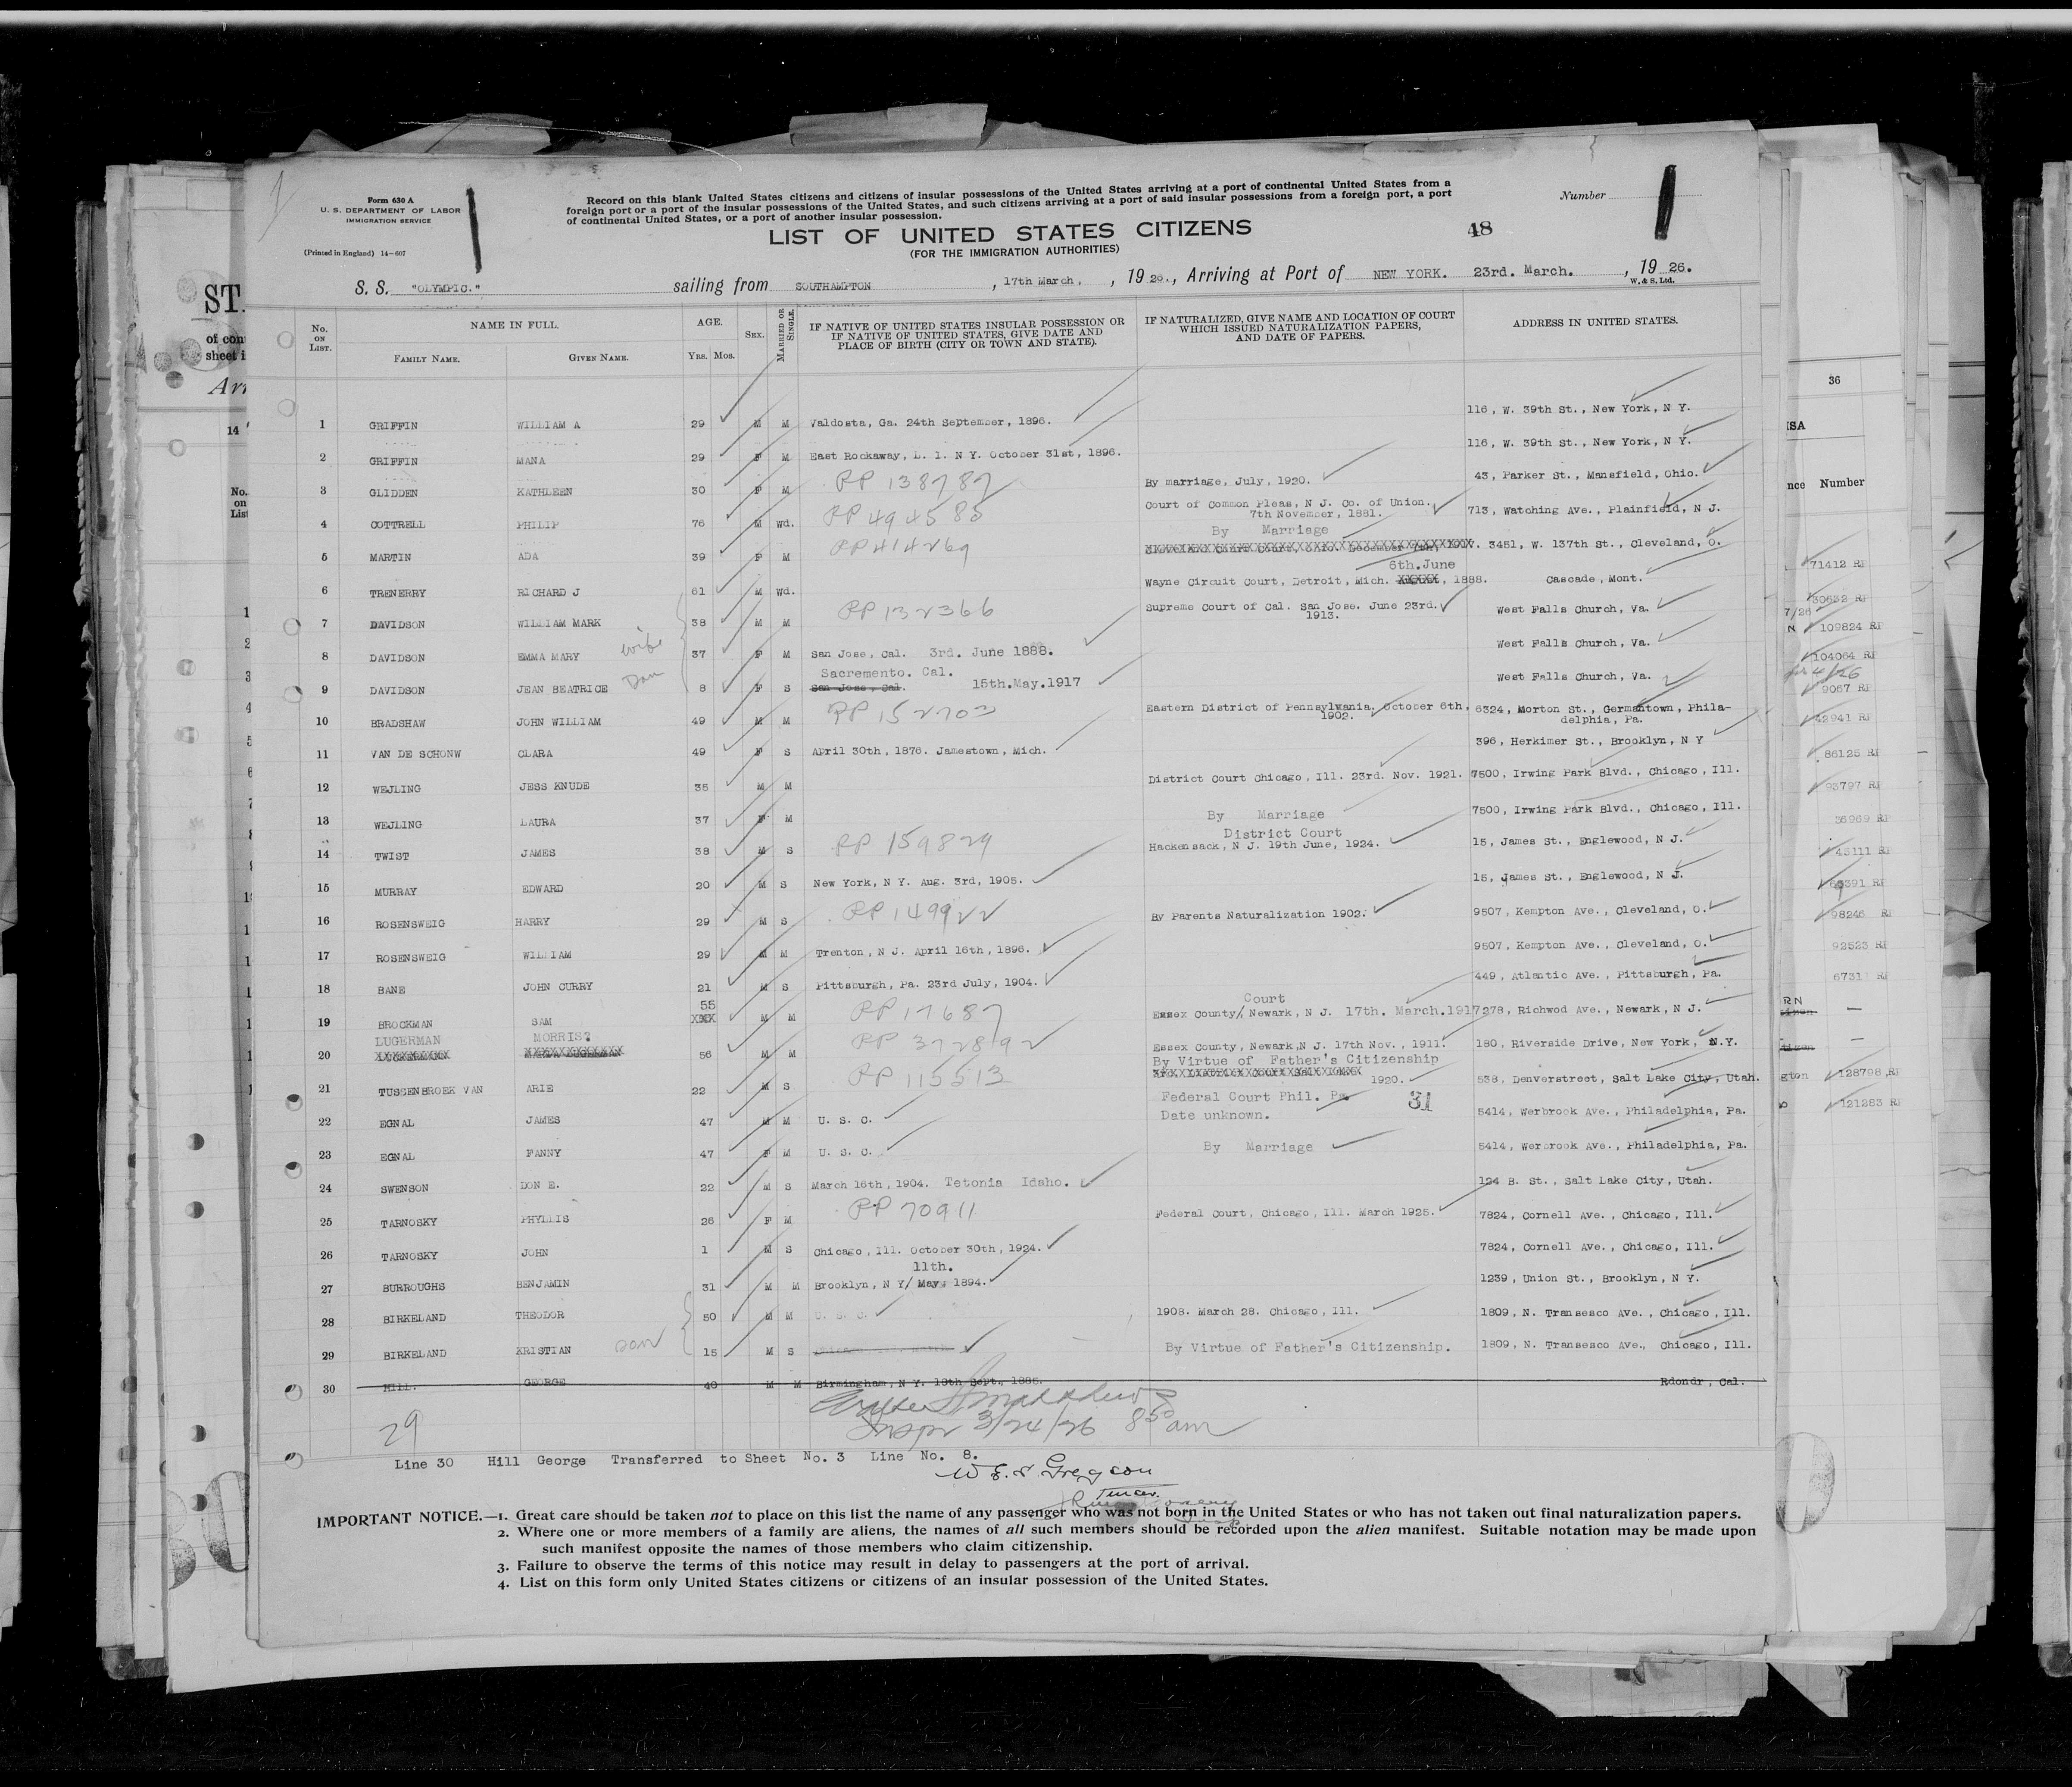 Form 630 A
U. S. DEPARTMENT OF LABOR
IMMIGRATION SERVICE
(Printed in England) 14—607
Record on this blank United States citizens and citizens of insular possessions of the United States arriving at a port of continental United States from a
foreign port or a port of the insular possessions of the United States, and such citizens arriving at a port of said insular possessions from a foreign port, a port
of continental United States, or a port of another insular possession.
Number
LIST OF UNITED STATES CITIZENS
48
(FOR THE IMMIGRATION AUTHORITIES)
S. S. "OLYMPIC." sailing from SOUTHAMPTON , 17th March, , 19 26., Arriving at Port of NEW YORK. 23rd. March. , 19 26.
W. & S. Ltd.
No. ON LIST. NAME IN FULL. FAMILY NAME. GIVEN NAME. AGE. Yrs. Mos. SEX. MARRIED OR SINGLE.
IF NATIVE OF UNITED STATES INSULAR POSSESSION OR
IF NATIVE OF UNITED STATES, GIVE DATE AND
PLACE OF BIRTH (CITY OR TOWN AND STATE).
IF NATURALIZED, GIVE NAME AND LOCATION OF COURT
WHICH ISSUED NATURALIZATION PAPERS,
AND DATE OF PAPERS.
ADDRESS IN UNITED STATES.
1 GRIFFIN WILLIAM A 29 M M Valdosta, Ga. 24th September, 1896. 116, W. 39th St., New York, N Y.
2 GRIFFIN MANA 29 F M East Rockaway, L. I. N Y. October 31st, 1896. 116, W. 39th St., New York, N Y.
3 GLIDDEN KATHLEEN 30 F M PP 138787 By marriage, July, 1920. 43, Parker St., Mansfield, Ohio.
4 COTTRELL PHILIP 76 M Wd. PP 494585 Court of Common Pleas, N J. Co. of Union. 7th November, 1881. 713, Watching Ave., Plainfield, N J.
5 MARTIN ADA 39 F M PP 414269 By Marriage 3451, W. 137th St., Cleveland, O.
6 TRENERRY RICHARD J 61 M Wd. Wayne Circuit Court, Detroit, Mich. 6th.June, 1888. Cascade, Mont.
7 DAVIDSON WILLIAM MARK 38 M M PP 132366 Supreme Court of Cal. San Jose. June 23rd. 1913. West Falls Church, Va.
8 DAVIDSON EMMA MARY wife 37 F M San Jose, Cal. 3rd. June 1888. West Falls Church, Va.
9 DAVIDSON JEAN BEATRICE Dau 8 F S Sacremento. Cal. San Jose, Cal. 15th.May.1917 West Falls Church, Va.
10 BRADSHAW JOHN WILLIAM 49 M M PP 152703 Eastern District of Pennsylvania, October 6th, 1902. 6324, Morton St., Germantown, Phila-
delphia, Pa.
11 VAN DE SCHONW CLARA 49 F S April 30th, 1876. Jamestown, Mich. 396, Herkimer St., Brooklyn, N Y
12 WEJLING JESS KNUDE 35 M M District Court Chicago, Ill. 23rd. Nov. 1921. 7500, Irwing Park Blvd., Chicago, Ill.
13 WEJLING LAURA 37 F M By Marriage 7500, Irwing Park Blvd., Chicago, Ill.
14 TWIST JAMES 38 M S PP 159829 District Court Hackensack, N J. 19th June, 1924. 15, James St., Englewood, N J.
15 MURRAY EDWARD 20 M S New York, N Y. Aug. 3rd, 1905. 15, James St., Englewood, N J.
16 ROSENSWEIG HARRY 29 M S PP 149922 By Parents Naturalization 1902. 9507, Kempton Ave., Cleveland, O.
17 ROSENSWEIG WILLIAM 29 M M Trenton, N J. April 16th, 1896. 9507, Kempton Ave., Cleveland, O.
18 BANE JOHN CURRY 21 M S Pittsburgh, Pa. 23rd July, 1904. 449, Atlantic Ave., Pittsburgh, Pa.
19 BROCKMAN SAM 55 M M PP 17687 Essex County Court, Newark, N J. 17th. March.1917 278, Richwod Ave., Newark, N J.
20 LUGERMAN MORRIS? 56 M M PP 372892 Essex County, Newark, N J. 17th Nov., 1911. 180, Riverside Drive, New York, N.Y.
21 TUSSENBROEK VAN ARIE 22 M S PP 115513 By Virtue of Father's Citizenship 1920. 538, Denverstreet, Salt Lake City, Utah.
22 EGNAL JAMES 47 M M U. S. C. Federal Court Phil. Pa Date unknown. 31 5414, Werbrook Ave., Philadelphia, Pa.
23 EGNAL FANNY 47 F M U. S. C. By Marriage 5414, Werbrook Ave., Philadelphia, Pa.
24 SWENSON DON E. 22 M S March 16th, 1904. Tetonia Idaho. 124 B. St., Salt Lake City, Utah.
25 TARNOSKY PHYLLIS 26 F M PP 70911 Federal Court, Chicago, Ill. March 1925. 7824, Cornell Ave., Chicago, Ill.
26 TARNOSKY JOHN 1 M S Chicago, Ill. October 30th, 1924. 7824, Cornell Ave., Chicago, Ill.
27 BURROUGHS BENJAMIN 31 M M Brooklyn, N Y/ 11th. May 1894. 1239, Union St., Brooklyn, N Y.
28 BIRKELAND THEODOR 50 M M U. S. C. 1908. March 28. Chicago, Ill. 1809, N. Transesco Ave., Chicago, Ill.
29 BIRKELAND KRISTIAN son 15 M S By Virtue of Father's Citizenship. 1809, N. Transesco Ave., Chicago, Ill.
30 HILL. GEORGE 40 M M Birmingham, N Y. 18th Sept., 1885. Rdondr, Cal.
29
Inspr 3/24/26 8 50 am
Line 30 Hill George Transferred to Sheet No. 3 Line No. 8.
IMPORTANT NOTICE.—1. Great care should be taken not to place on this list the name of any passenger who was not born in the United States or who has not taken out final naturalization papers.
2. Where one or more members of a family are aliens, the names of all such members should be recorded upon the alien manifest. Suitable notation may be made upon
such manifest opposite the names of those members who claim citizenship.
3. Failure to observe the terms of this notice may result in delay to passengers at the port of arrival.
4. List on this form only United States citizens or citizens of an insular possession of the United States.
36
Number
71412 RP
30632 RP
109824 RP
104064 RP
9067 RP
42941 RP
86125 RP
93797 RP
36969 RP
45111 RP
98246 RP
92523 RP
128798 RP
121283 RP